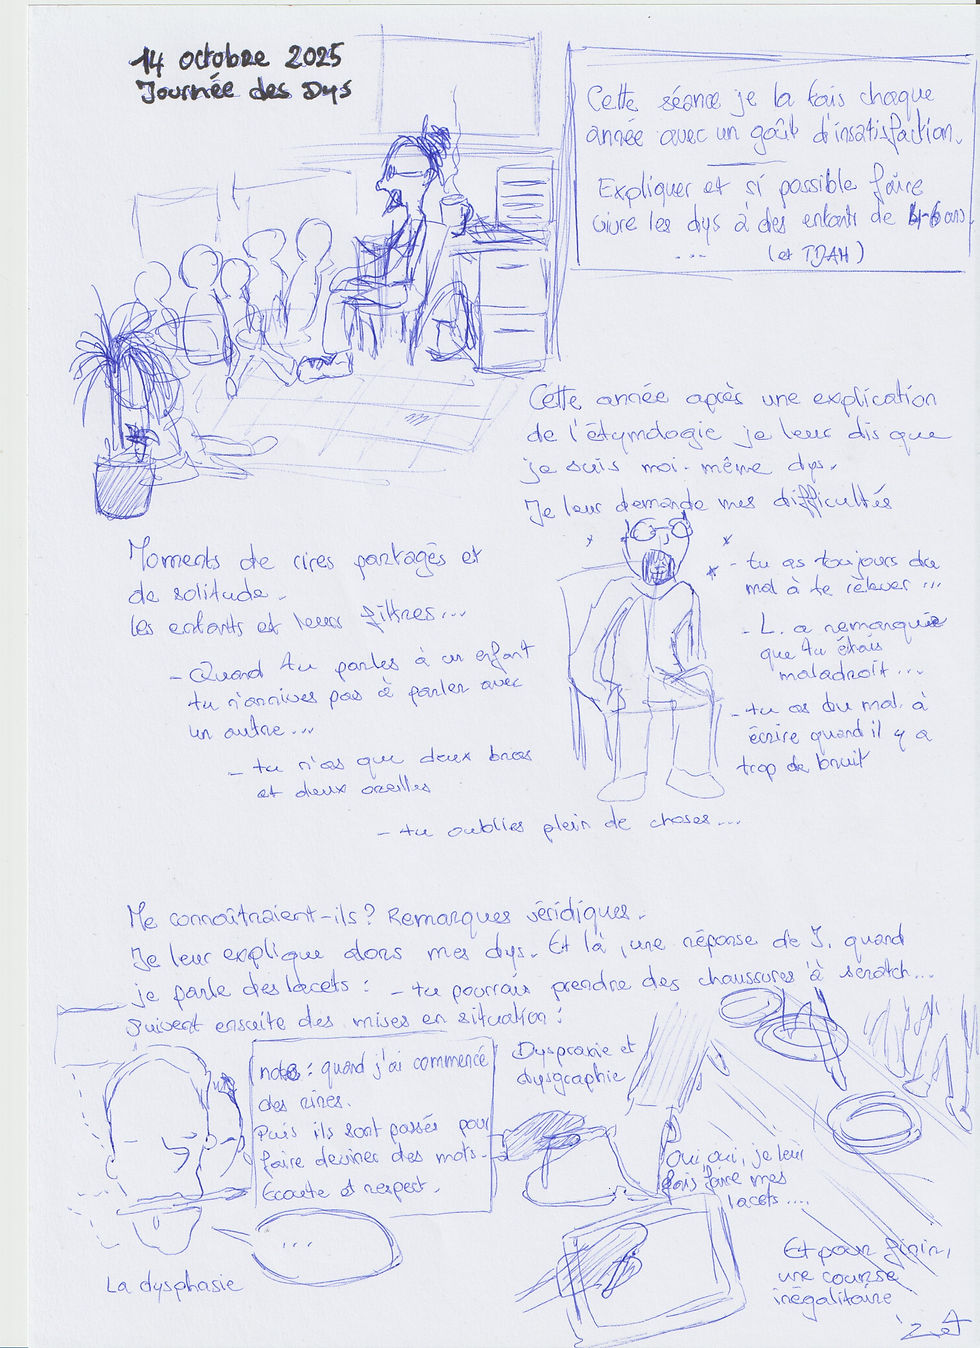 14 octobre 2025
Journée des Dys
Cette séance je la fais chaque
année avec un goût d'insatisfaction.
Expliquer et si possible faire
vivre les dys à des enfants de 4-6 ans
... (et TDAH)
Cette année après une explication
de l'étymologie je leur dis que
je suis moi-même dys.
Je leur demande mes difficultés
Moments de rires partagés et
de solitude.
Les enfants et leurs filtres...
- Quand tu parles à un enfant
tu n'arrives pas à parler avec
un autre...
- tu n'as que deux bras
et deux oreilles
- tu as toujours du
mal à te relever ...
- L. a remarqué
que tu étais
maladroit...
- tu as du mal à
écrire quand il y a
trop de bruit
- tu oublies plein de choses...
Me connaîtraient-ils? Remarques véridiques.
Je leur explique alors mes dys. Et là, une réponse de J. quand
je parle des lacets : - tu pourrais prendre des chaussures à scratch...
Suivent ensuite des mises en situation :
note : quand j'ai commencé
des rires.
Puis ils sont passés pour
faire deviner des mots.
Ecoute et respect.
...
La dysphasie
Dyspraxie et
dysgraphie
Oui oui, je leur
fais faire mes
lacets....
Et pour finir,
une course
inégalitaire